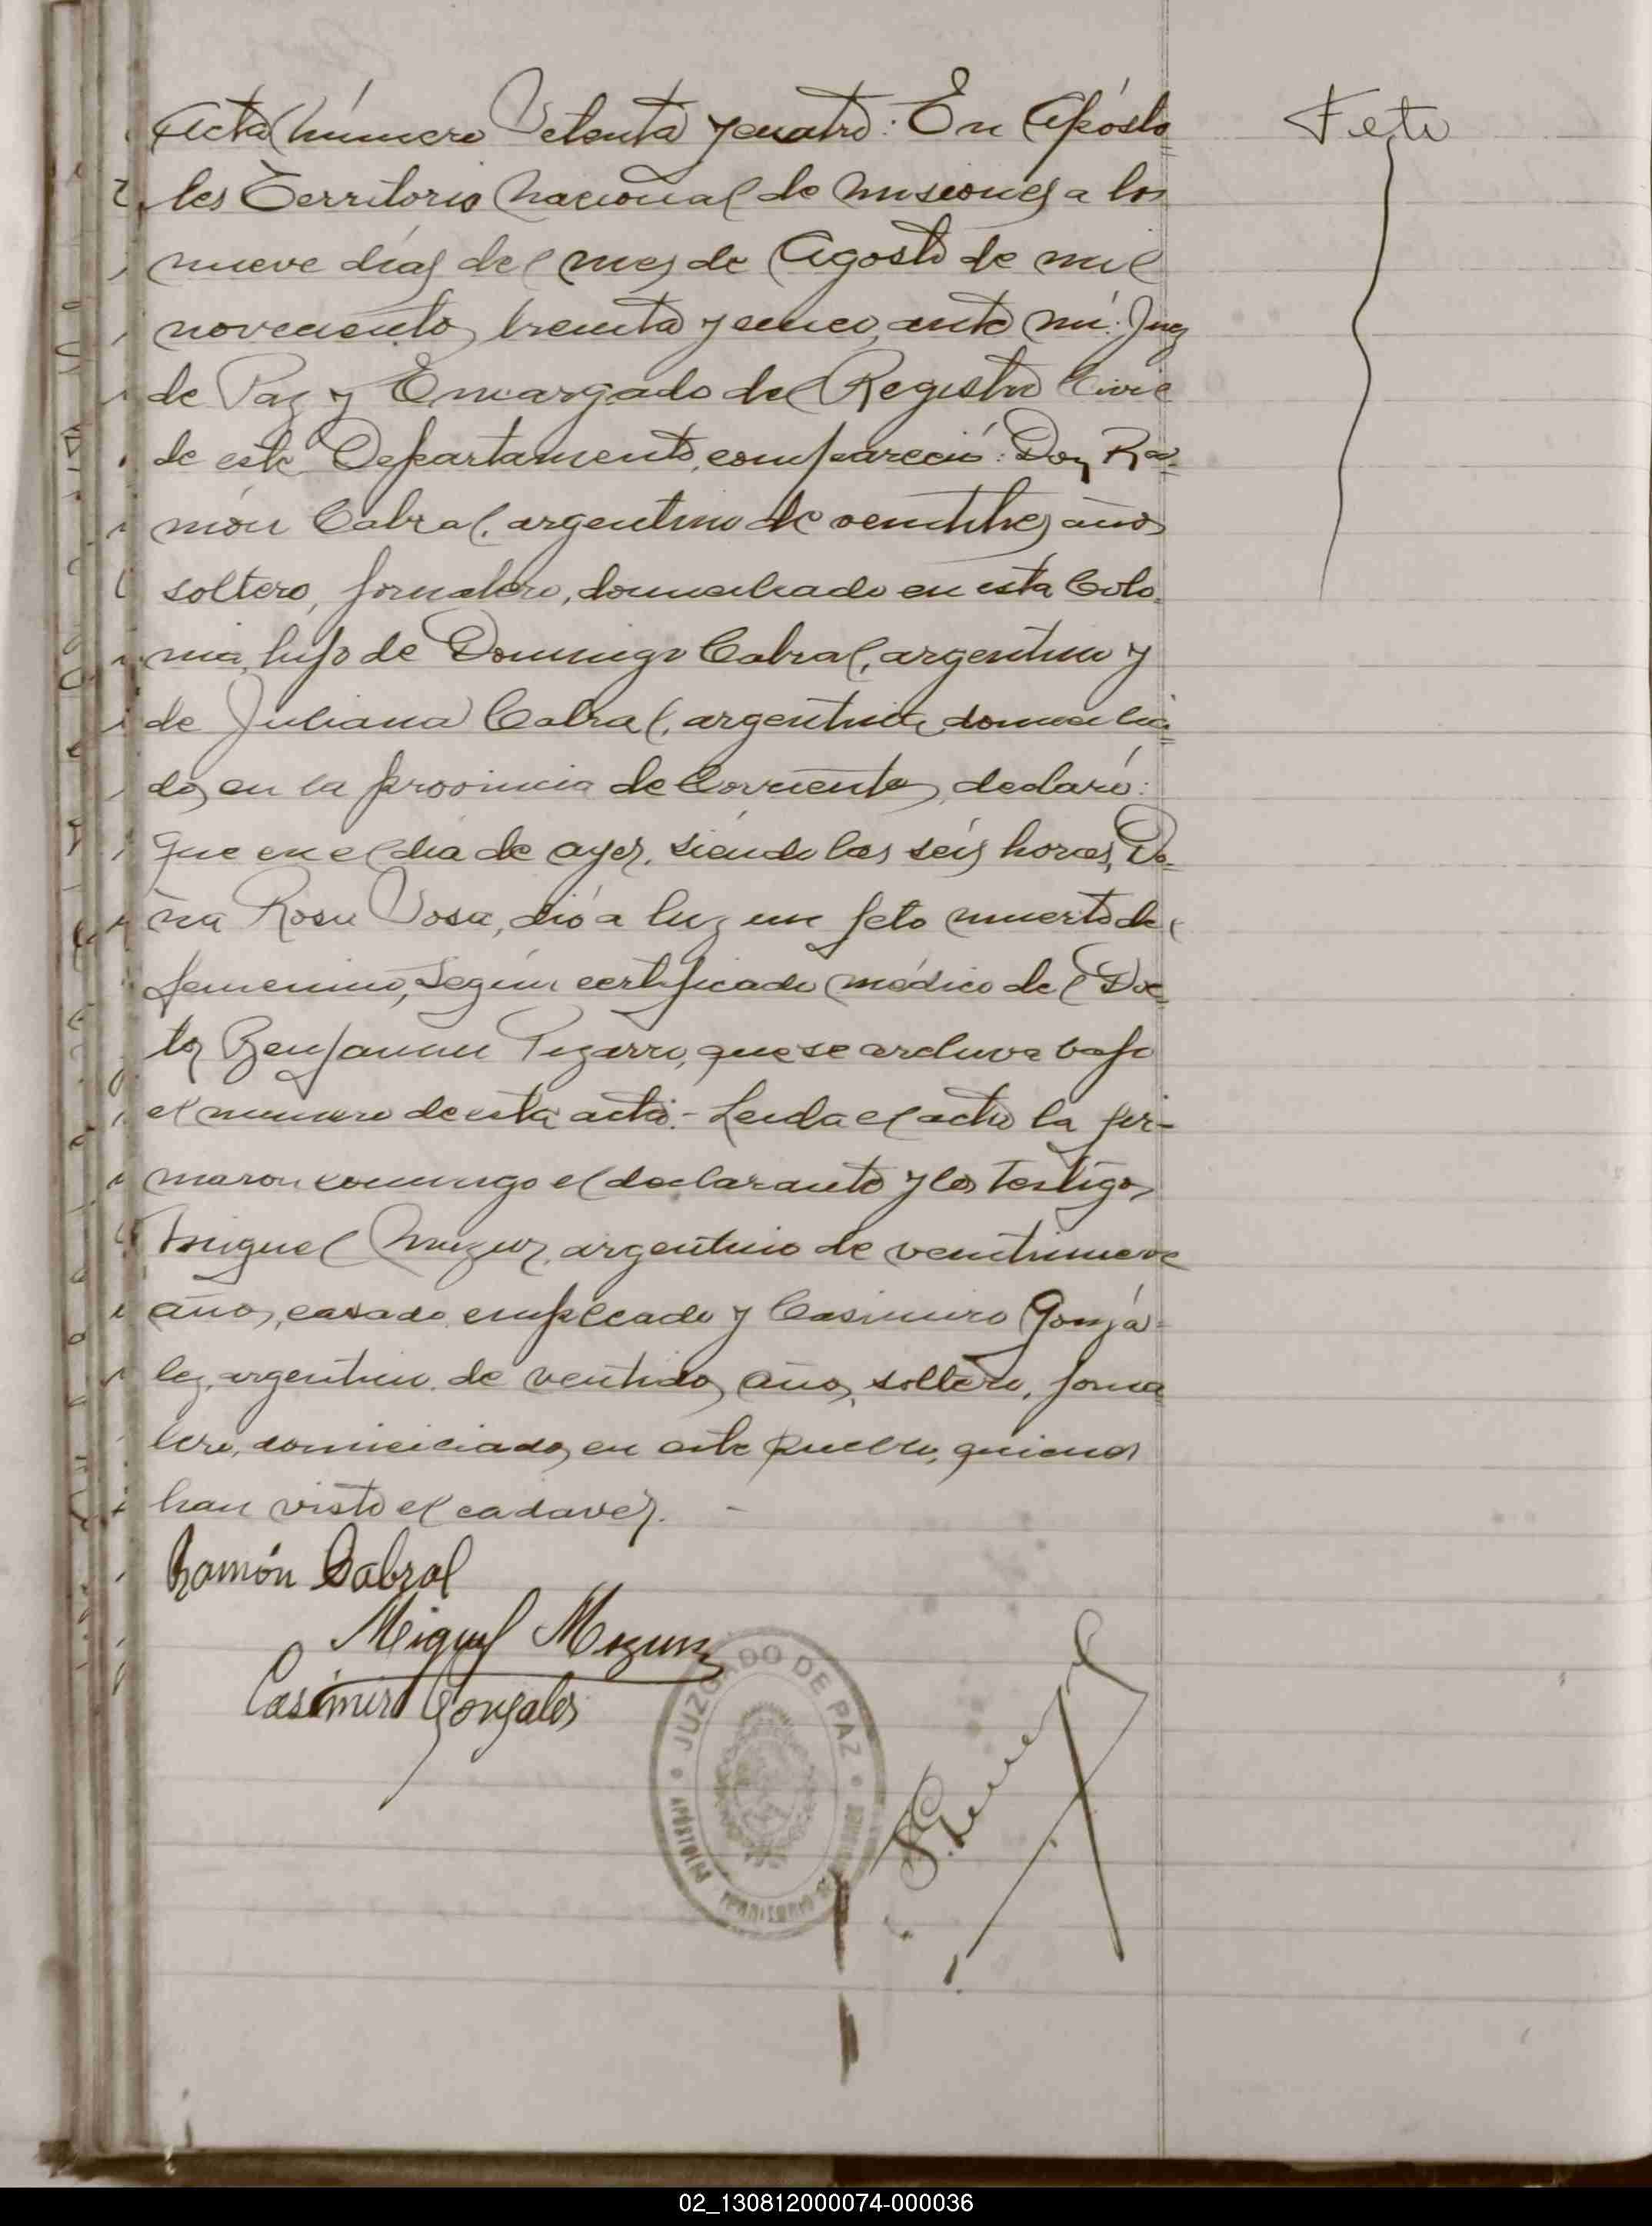 Acta número Setenta y cuatro: En Apósto
Feto
les Territorio Nacional de Misiones a los
nueve días del mes de Agosto de mil
novecientos treinta y cinco, ante mí: Juez
de Paz y Encargado del Registro Civil
de este Departamento, compareció: Don Ra-
món Cabral, argentino de veintitres años
soltero, jornalero, domiciliado en esta Colo
nia, hijo de Domingo Cabral, argentino y
de Juliana Cabral, argentina, domicilia
dos en la provincia de Corrientes, declaró:
que en el día de ayer, siendo las seis horas, Do-
ña Rosa Sosa, dió a luz un feto muerto del
femenino, según certificado médico del Doc
tor Benjamin Pizarro, que se archiva bajo
el numero de esta acta.- Leida el acta la fir-
maron conmigo el declarante y los testigos
Miguel argentino de veintinueve
años, casado, empleado y Casimiro Gonzá-
lez, argentino, de ventidos años, soltero, jorna
lero, domiciliados en este pueblo, quienes
han visto el cadaver. -
Ramón Cabral
Miguel
Casimiro Gonzales
JUZGADO DE PAZ
APÓSTOLES
02_130812000074-000036